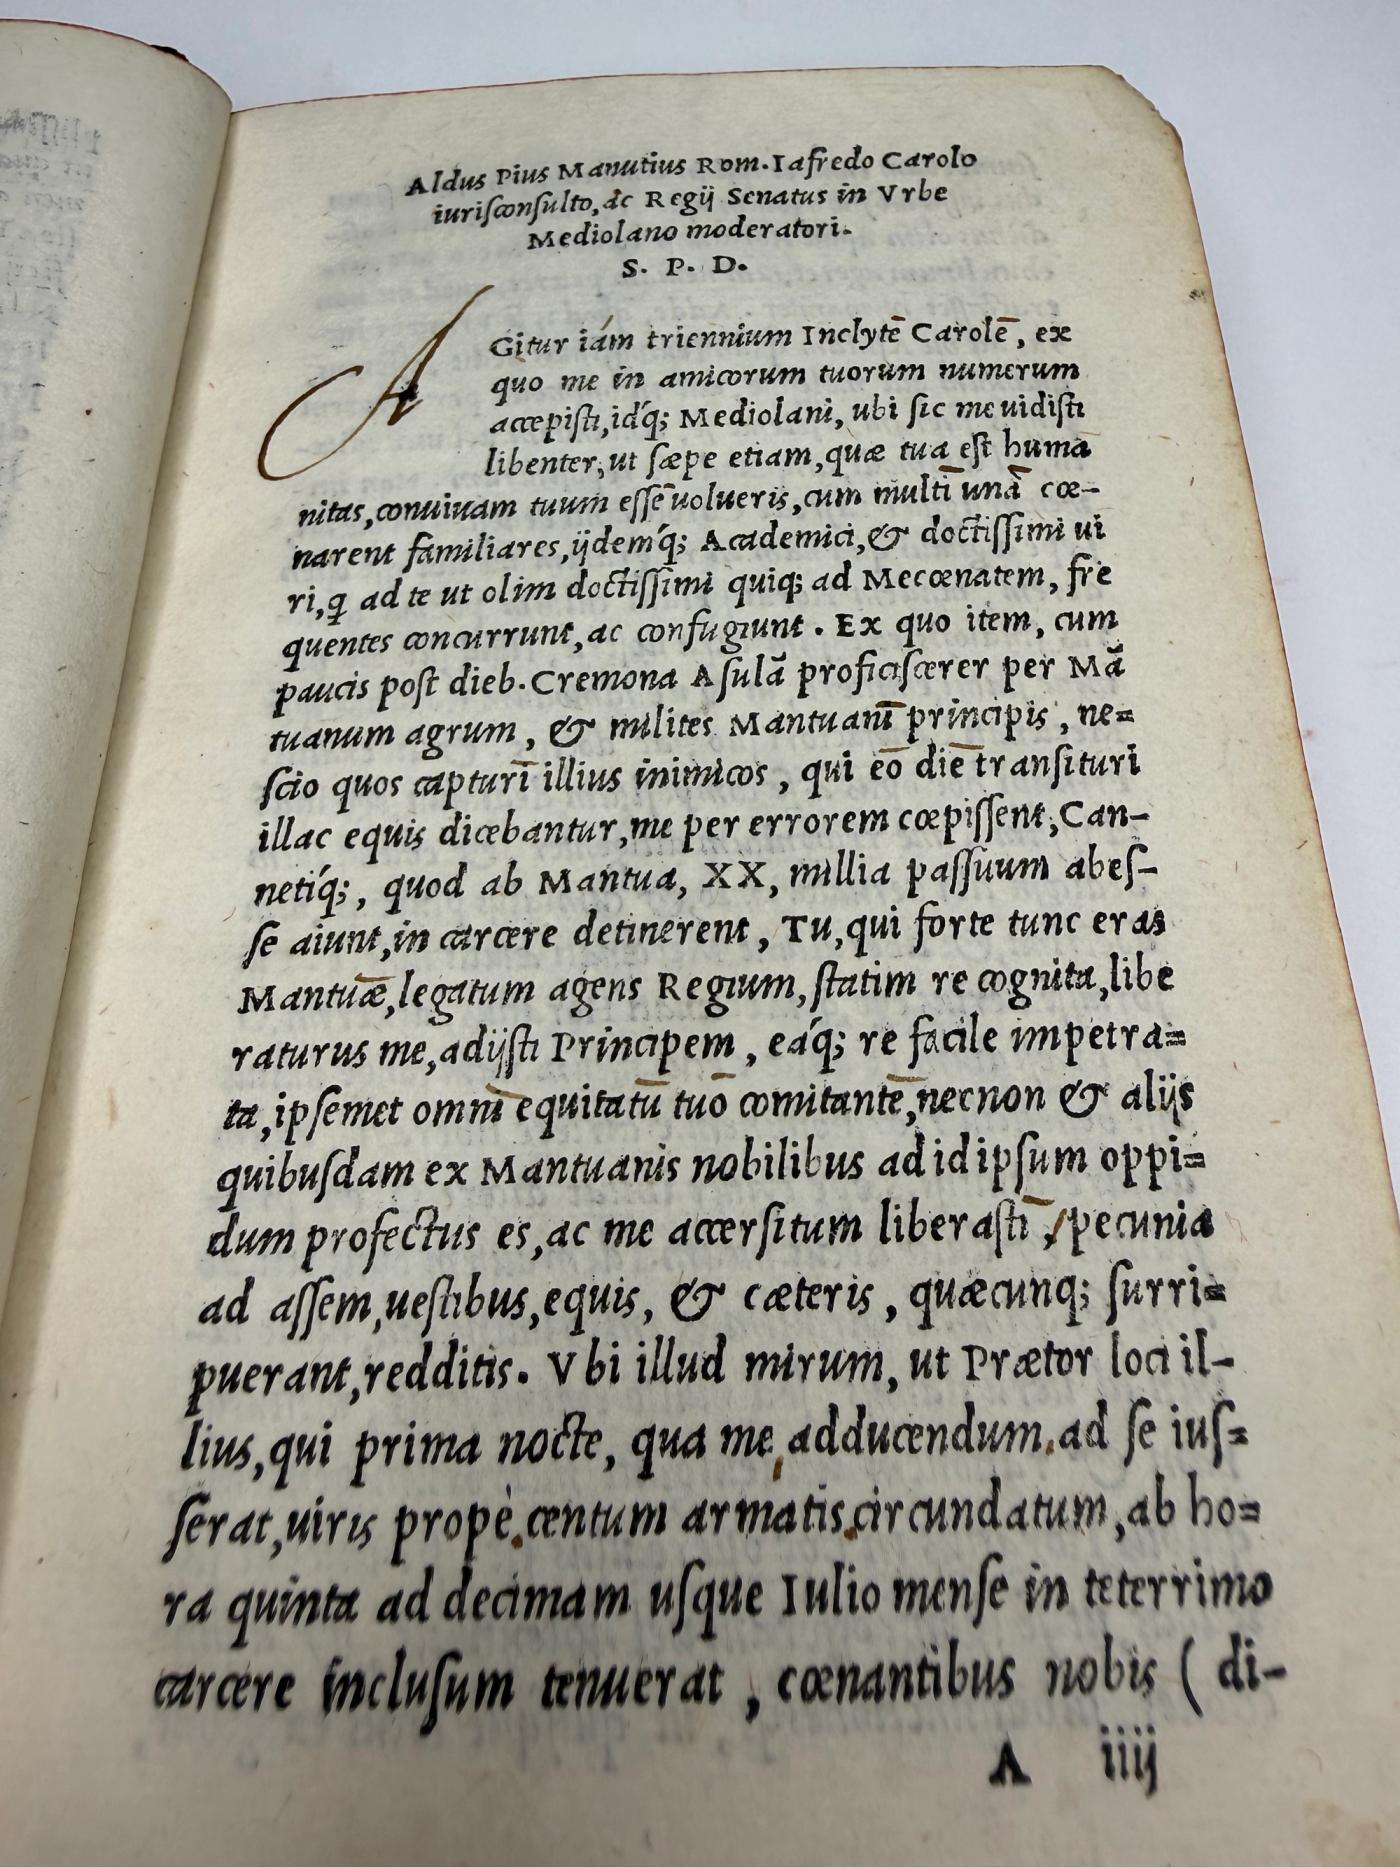 Aldus Pius Manutius Rom. Iafredo Carolo
iuriſconſulto, ac Regij Senatus in Vrbe
Mediolano moderatori.
S. P. D.
A Gitur iám triennium Inclytē Carolē, ex
quo me in amicorum tuorum numerum
accepiſti, idq́; Mediolani, ubi ſic me uidiſti
libenter, ut ſæpe etiam, quæ tua eſt humā
nitas, conuiuam tuum eſſē uolueris, cum multī unā cœ-
narent familiares, ijdemq́; Academici, & doctiſſimi ui
ri, ꝗ ad te ut olim doctiſſimi quiq; ad Mecœnatem, fre
quentes concurrunt, ac confugiunt. Ex quo item, cum
paucis poſt dieb. Cremona Aſulā proficiſcerer per Mā
tuanum agrum, & milites Mantuanī principis, ne=
ſcio quos capturī illius inimicos, qui eō diē tranſituri
illac equis dicebantur, me per errorem cœpiſſent, Can-
netiq́;, quod ab Mantua, XX, millia paſſuum abeſ-
ſe aiunt, in carcere detinerent, Tu, qui forte tunc eras
Mantuǣ, legatum agens Regium, ſtatim re cognita, libe
raturus me, adijſti Principem, eáq; re facile impetra=
ta, ipſemet omnī equitatū tuō comitantē, necnon & alijs
quibuſdam ex Mantuanis nobilibus ad id ipſum oppi=
dum profectus es, ac me accerſitum liberaſtī, pecunia
ad aſſem, ueſtibus, equis, & cæteris, quæcunq; ſurri=
puerant, redditis. Vbi illud mirum, ut Prætor loci il-
lius, qui prima nocte, qua me, adducendum, ad ſe iuſ=
ſerat, uiris propè, centum armatis, circundatum, ab ho=
ra quinta ad decimam uſque Iulio menſe in teterrimo
carcere incluſum tenuerat, cœnantibus nobis ( di-
A iiij